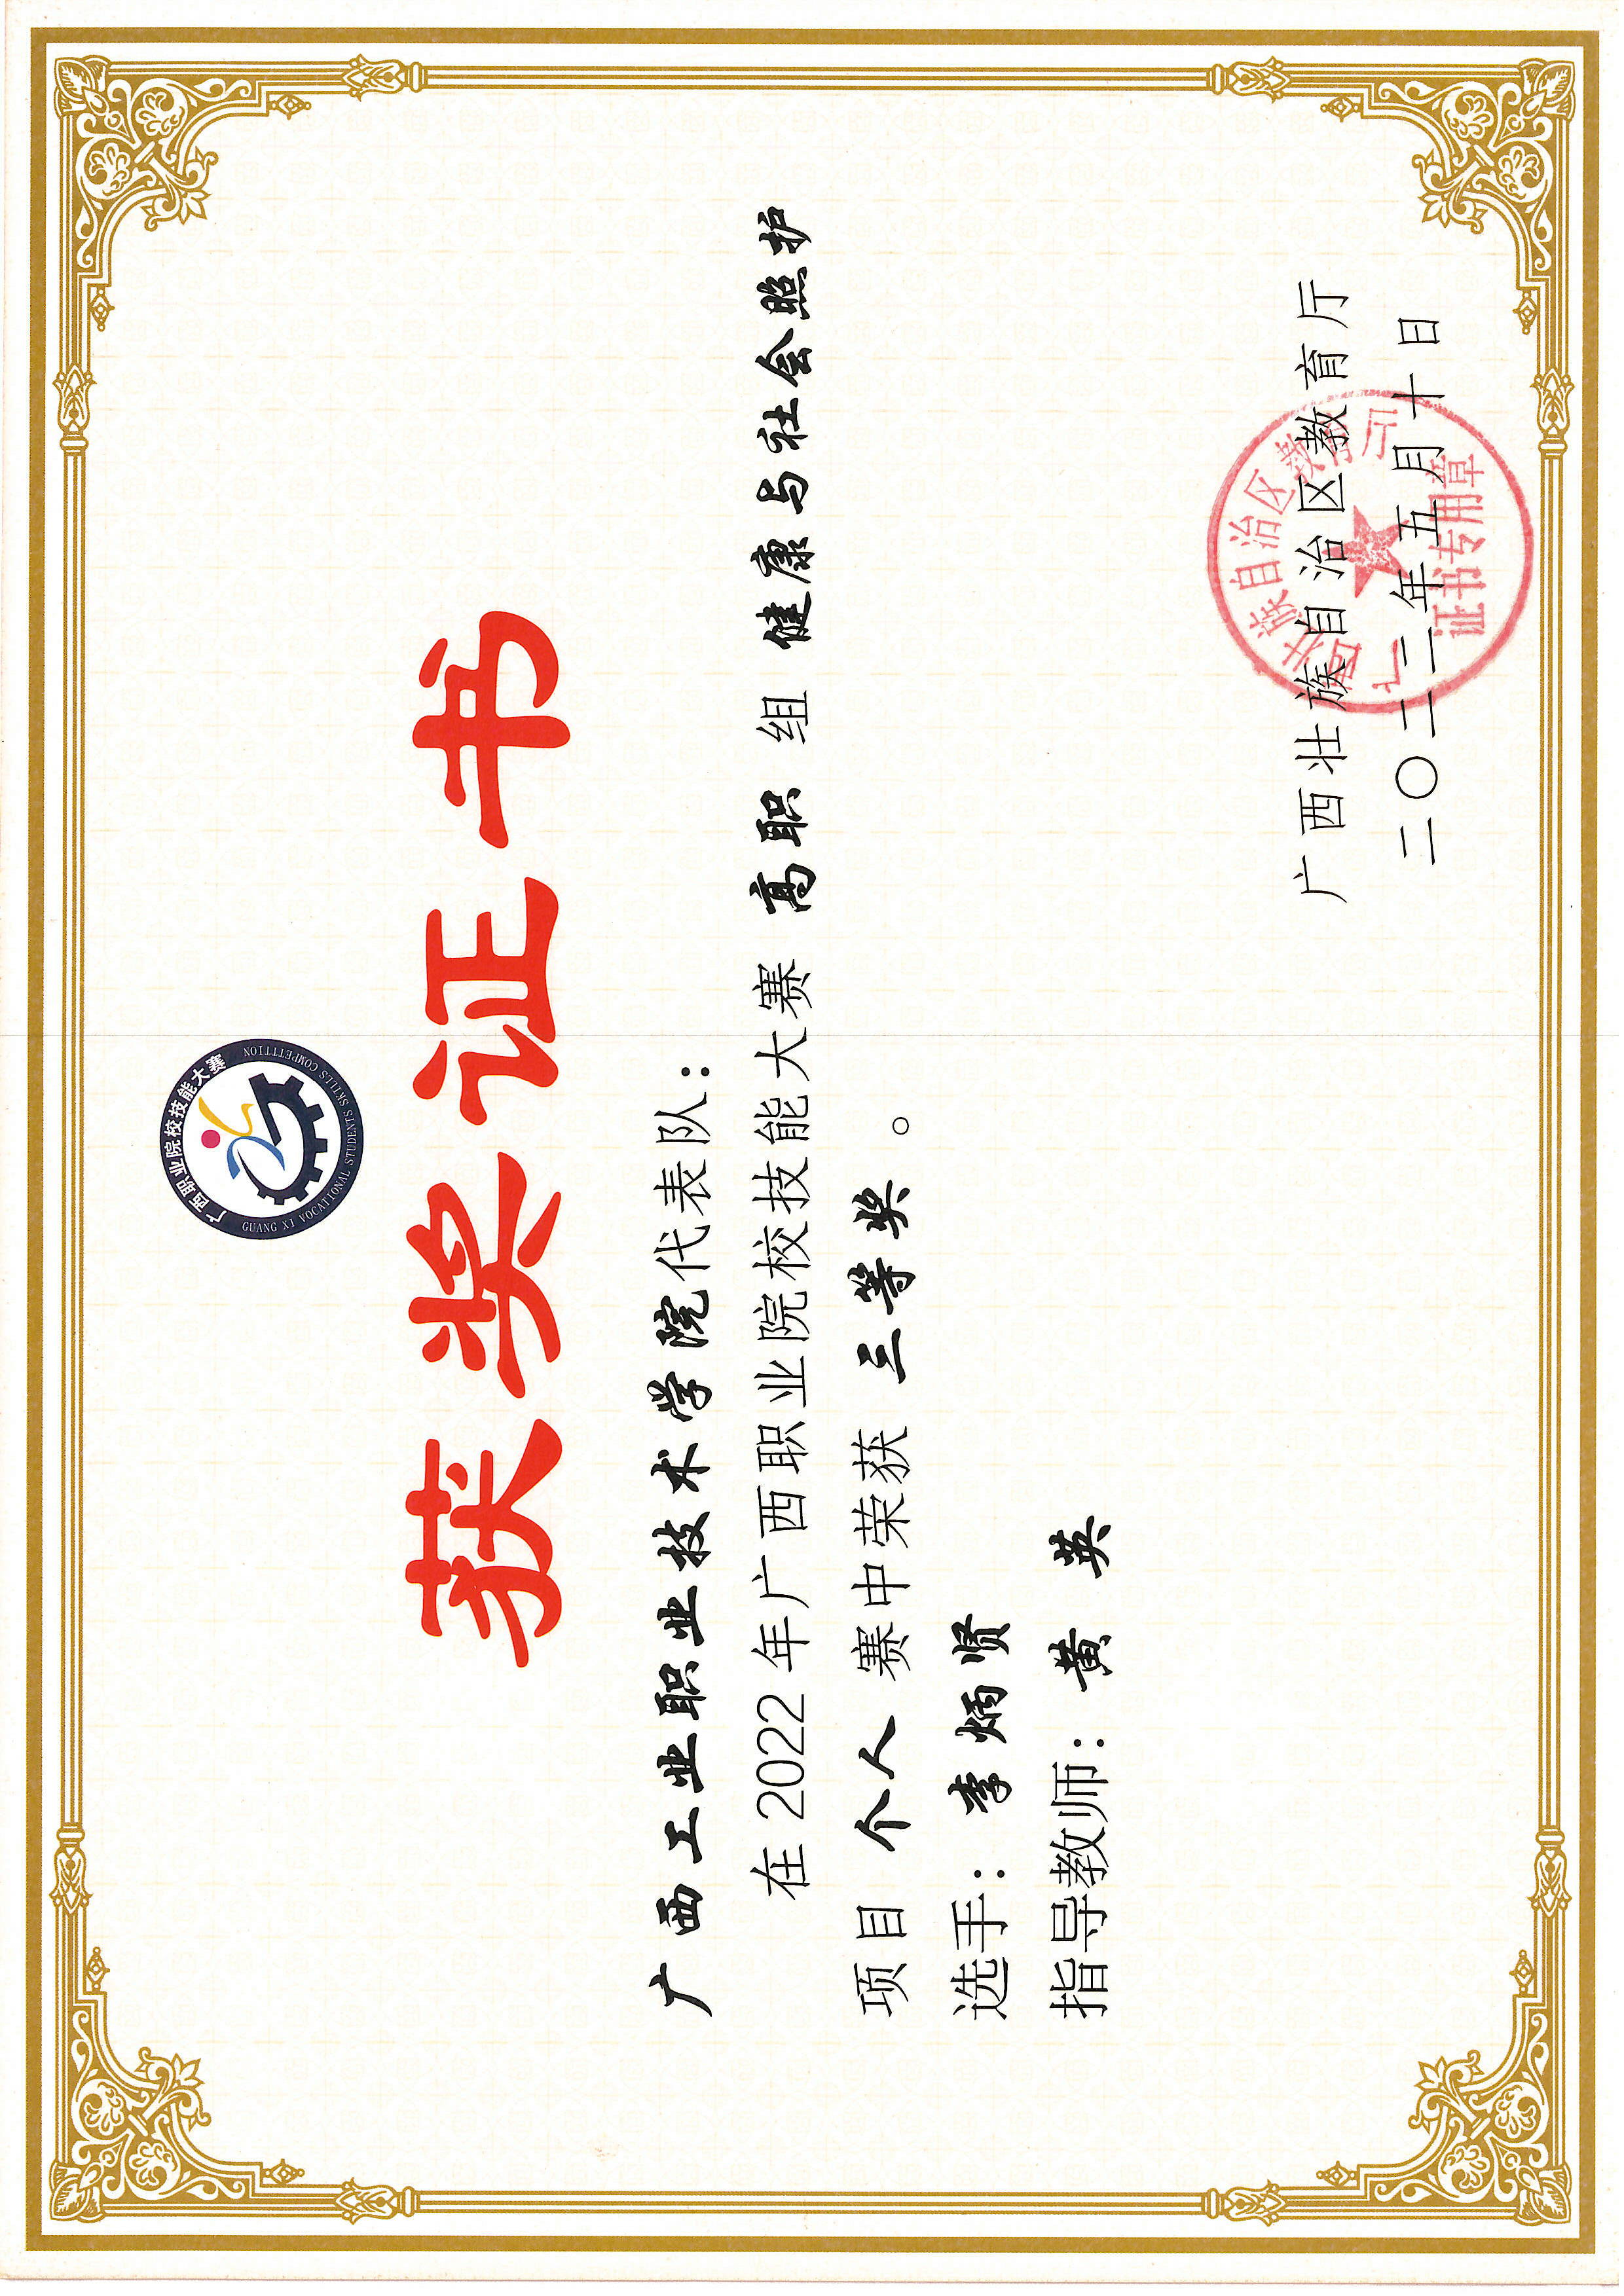 广西职业院校技能大赛
GUANG XI VOCATIONAL STUDENTS SKILLS COMPETITION
获奖证书
广西工业职业技术学院代表队：
在2022年广西职业院校技能大赛 高职 组 健康与社会照护
项目 个人 赛中荣获 三等奖 。
选手：李炳贤
指导教师：黄 英
广西壮族自治区教育厅
二〇二二年五月十日
广西壮族自治区教育厅
证书专用章